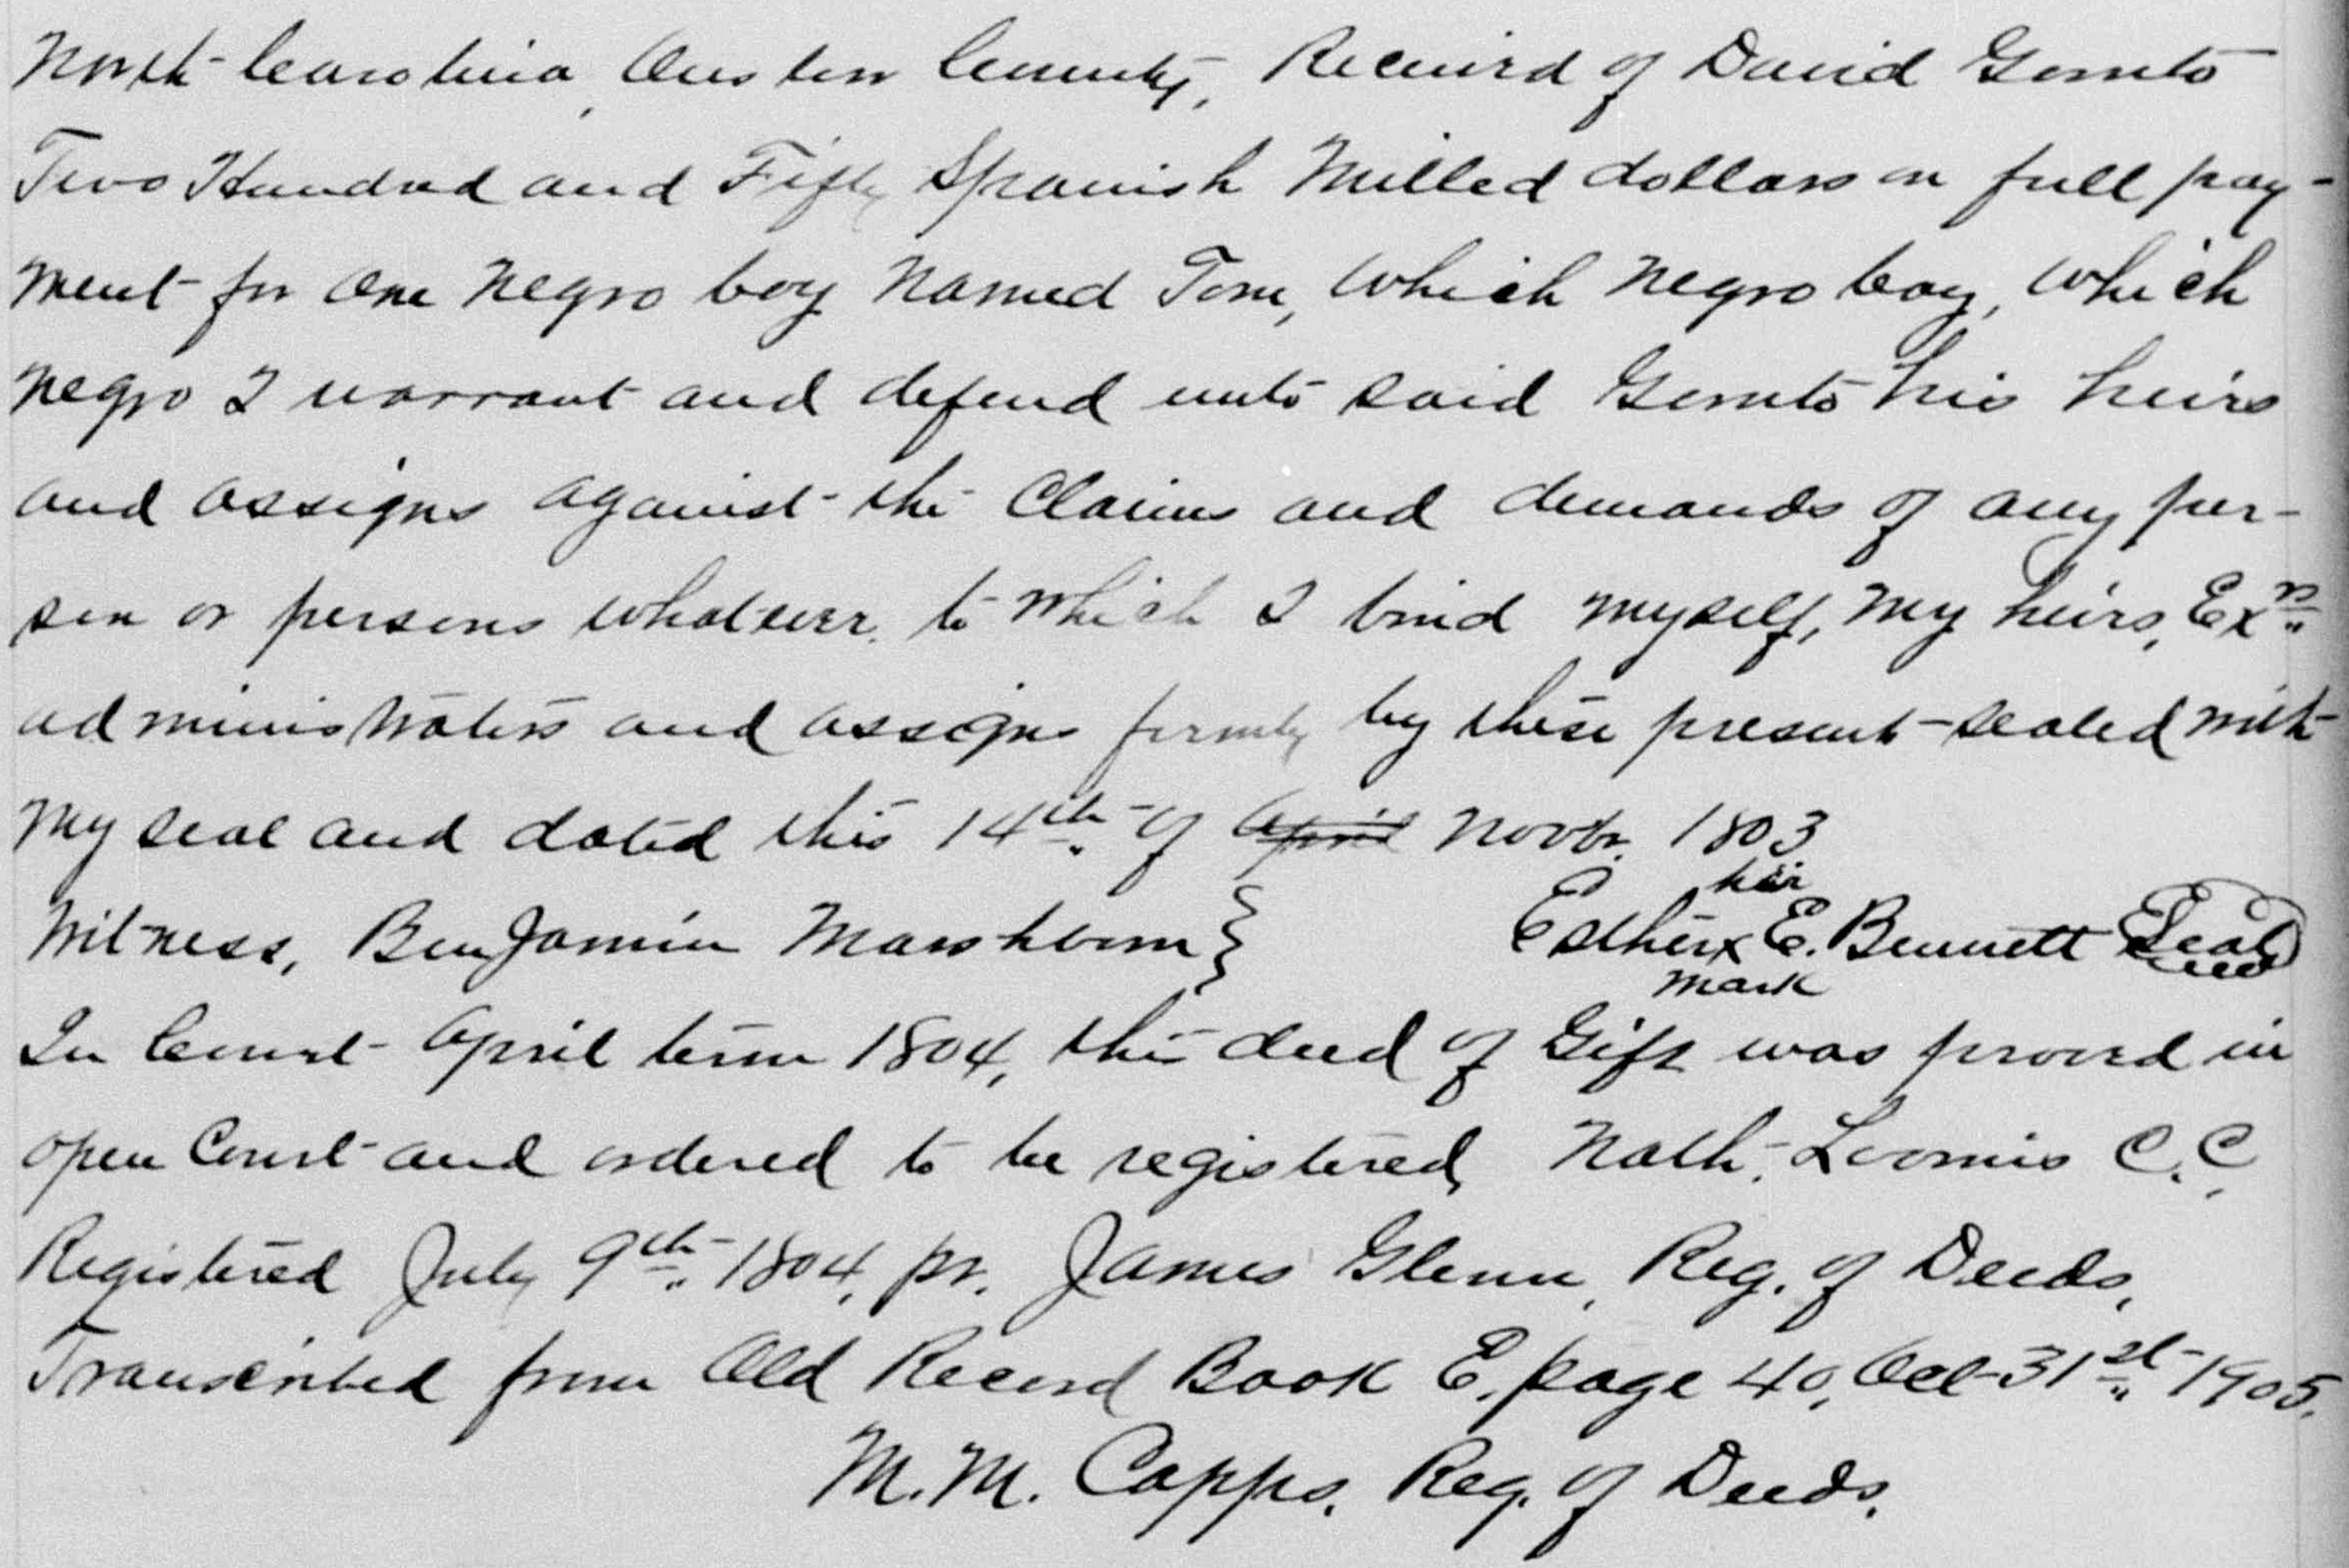 North Carolina, Onslow County, Received of David Gornto
Two Hundred and Fifty Spanish Milled dollars in full pay-
ment for One Negro boy Named Tom, Which Negro boy, Which
Negro I warrant and defend unto said Gornto his heirs
and assigns against the Claims and demands of any per-
son or persons whatsever, to which I bind myself, My heirs, Exrs
administrators and assigns firmly by these present sealed with
My seal and dated this 14th of April Novbr. 1803
her
Witness, BenJamin Marshburn } Esther x E. Bennett Seal
mark
In Court April term 1804, this deed of Gift was proved in
open Court and ordered to be registered, Nath. Loomis C.C.
Registered July 9th 1804, pr. James Glenn, Reg. of Deeds,
Transcribed from Old Record Book E, page 40, Oct 31st 1905.
M. M. Capps, Reg. of Deeds.